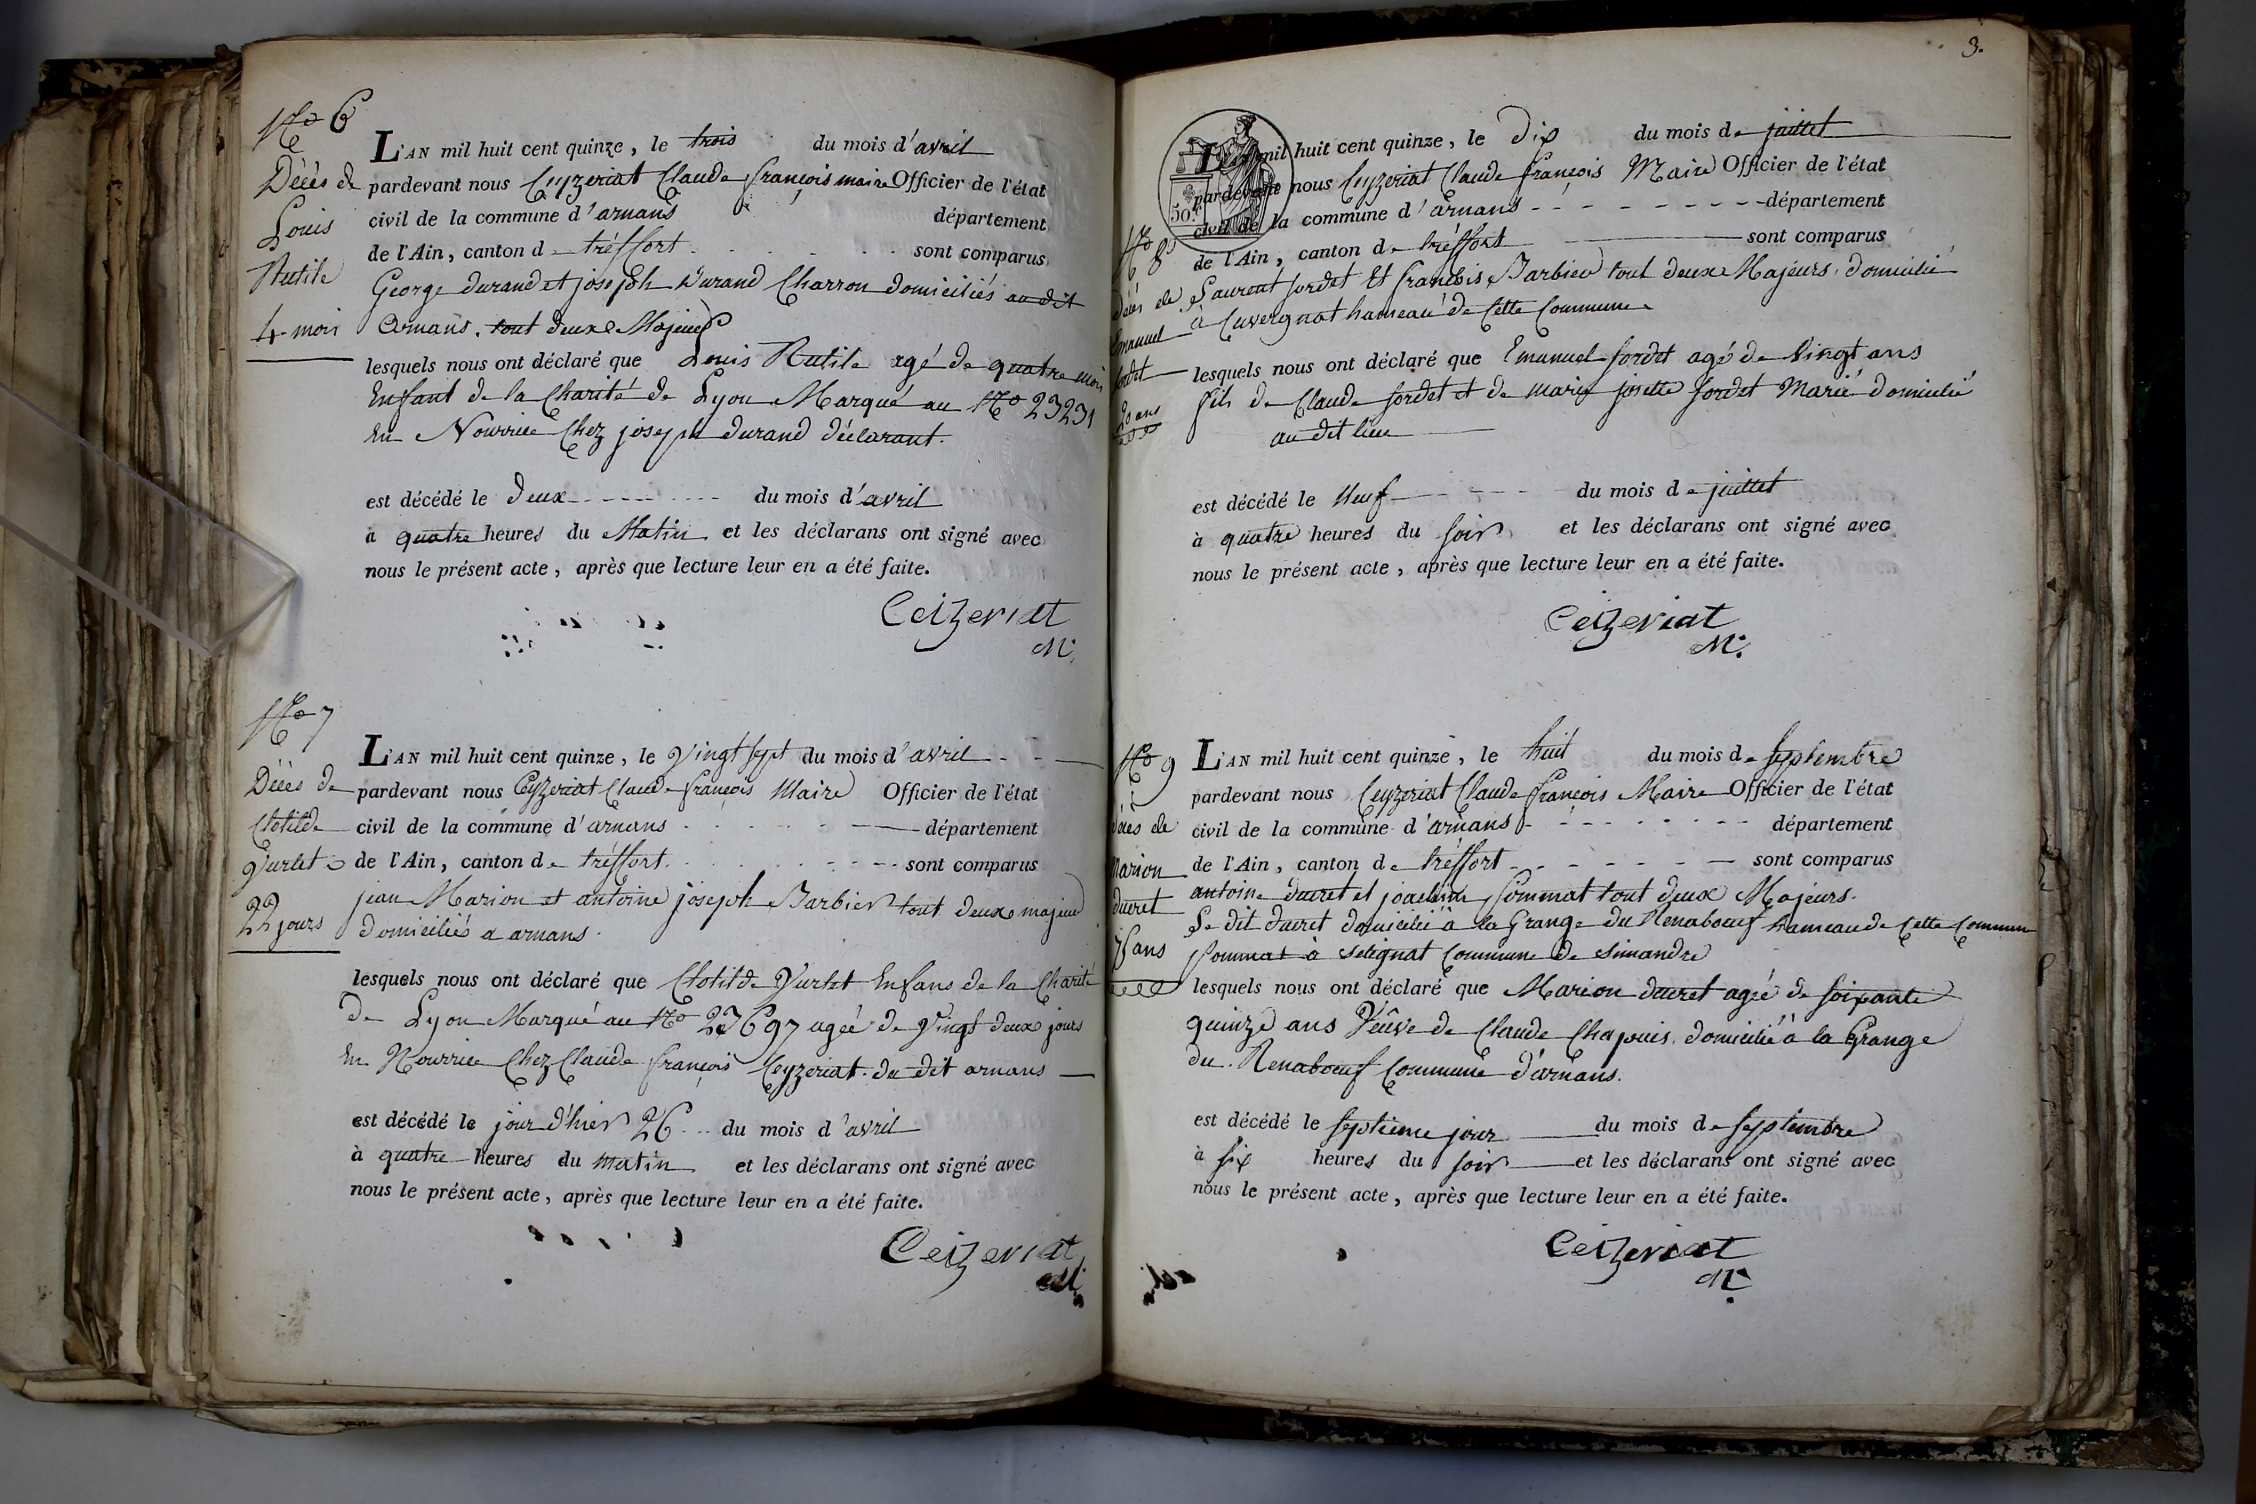 No 6
Décès de
Louis
Rutile
4 mois
L'AN mil huit cent quinze, le trois du mois d'avril
pardevant nous Ceyzeriat Claude françois maire Officier de l'état
civil de la commune d'arnans département
de l'Ain, canton de tréffort sont comparus
George durand et joseph durand Charron domiciliés au dit
Arnans, tout deux Majeurs
lesquels nous ont déclaré que Louis Rutile agé de quatre mois
Enfant de la Charité de Lyon Marqué au No 23231
En Nourrice Chez joseph durand déclarant.
est décédé le deux du mois d'avril
à quatre heures du Matin et les déclarans ont signé avec
nous le présent acte, après que lecture leur en a été faite.
Ceizeriat
M.
No 7
Décès de
Clotilde
Yurlet
22 jours
L'AN mil huit cent quinze, le vingt sept du mois d'avril
pardevant nous Ceyzeriat Claude françois Maire Officier de l'état
civil de la commune d'arnans département
de l'Ain, canton de tréffort. sont comparus
jean Marion et antoine joseph Barbier tout deux majeurs
domiciliés a arnans.
lesquels nous ont déclaré que Clotilde Yurlet Enfans de la Charité
De Lyon Marqué au No 23697 agée de vingt deux jours
En Nourrice Chez Claude françois Ceyzeriat du dit arnans
est décédé le jour d'hier 26 du mois d'avril
à quatre heures du matin et les déclarans ont signé avec
nous le présent acte, après que lecture leur en a été faite.
Ceizeriat
M.
3.
50.c
No 8
décès de
Emanuel
sordet
20 ans
L'AN mil huit cent quinze, le Dix du mois de juillet
pardevant nous Ceyzeriat Claude françois Maire Officier de l'état
civil de la commune d'arnans département
de l'Ain, canton de tréffort sont comparus
Laurent sordet Et francois Barbier tout deux Majeurs, domicilié
à Cuvergnat hameau de Cette Commune
lesquels nous ont déclaré que Emanuel sordet agé de Vingt ans
fils de Claude sordet et de marie josette sordet Marié domicilié
au dit lieu
est décédé le Neuf du mois de juillet
à quatre heures du soir et les déclarans ont signé avec
nous le présent acte, après que lecture leur en a été faite.
Ceizeriat
M.
No 9
décès de
Marion
ducret
75 ans
L'AN mil huit cent quinze, le huit du mois de septembre
pardevant nous Ceyzeriat Claude françois Maire Officier de l'état
civil de la commune d'arnans département
de l'Ain, canton de tréffort sont comparus
antoine ducret et joachim Pommat tout deux Majeurs.
Le dit ducret domicilié à la Grange du Renabouf hameau de Cette Commune
Pommat à selignat Commune de simandre
lesquels nous ont déclaré que Marion ducret agée de soixante
quinze ans Veûve de Claude Chapuis domicilié à la Grange
du Renabouf Commune d'arnans.
est décédé le septième jour du mois de septembre
à six heures du soir et les déclarans ont signé avec
nous le présent acte, après que lecture leur en a été faite.
Ceizeriat
M.